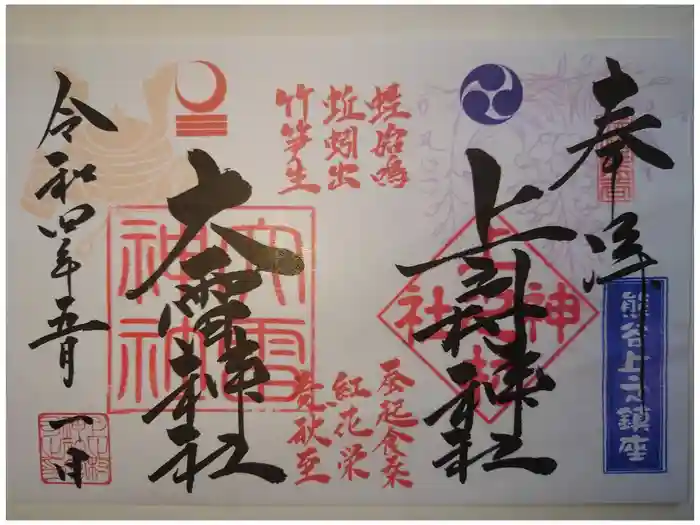 奉拝
熊谷上之鎮座
上之村神社
神社
蛙始鳴
蚯蚓出
竹笋生
蚕起食桑
紅花栄
麦秋至
大雷神社
大雷
神社
令和四年五月
一日